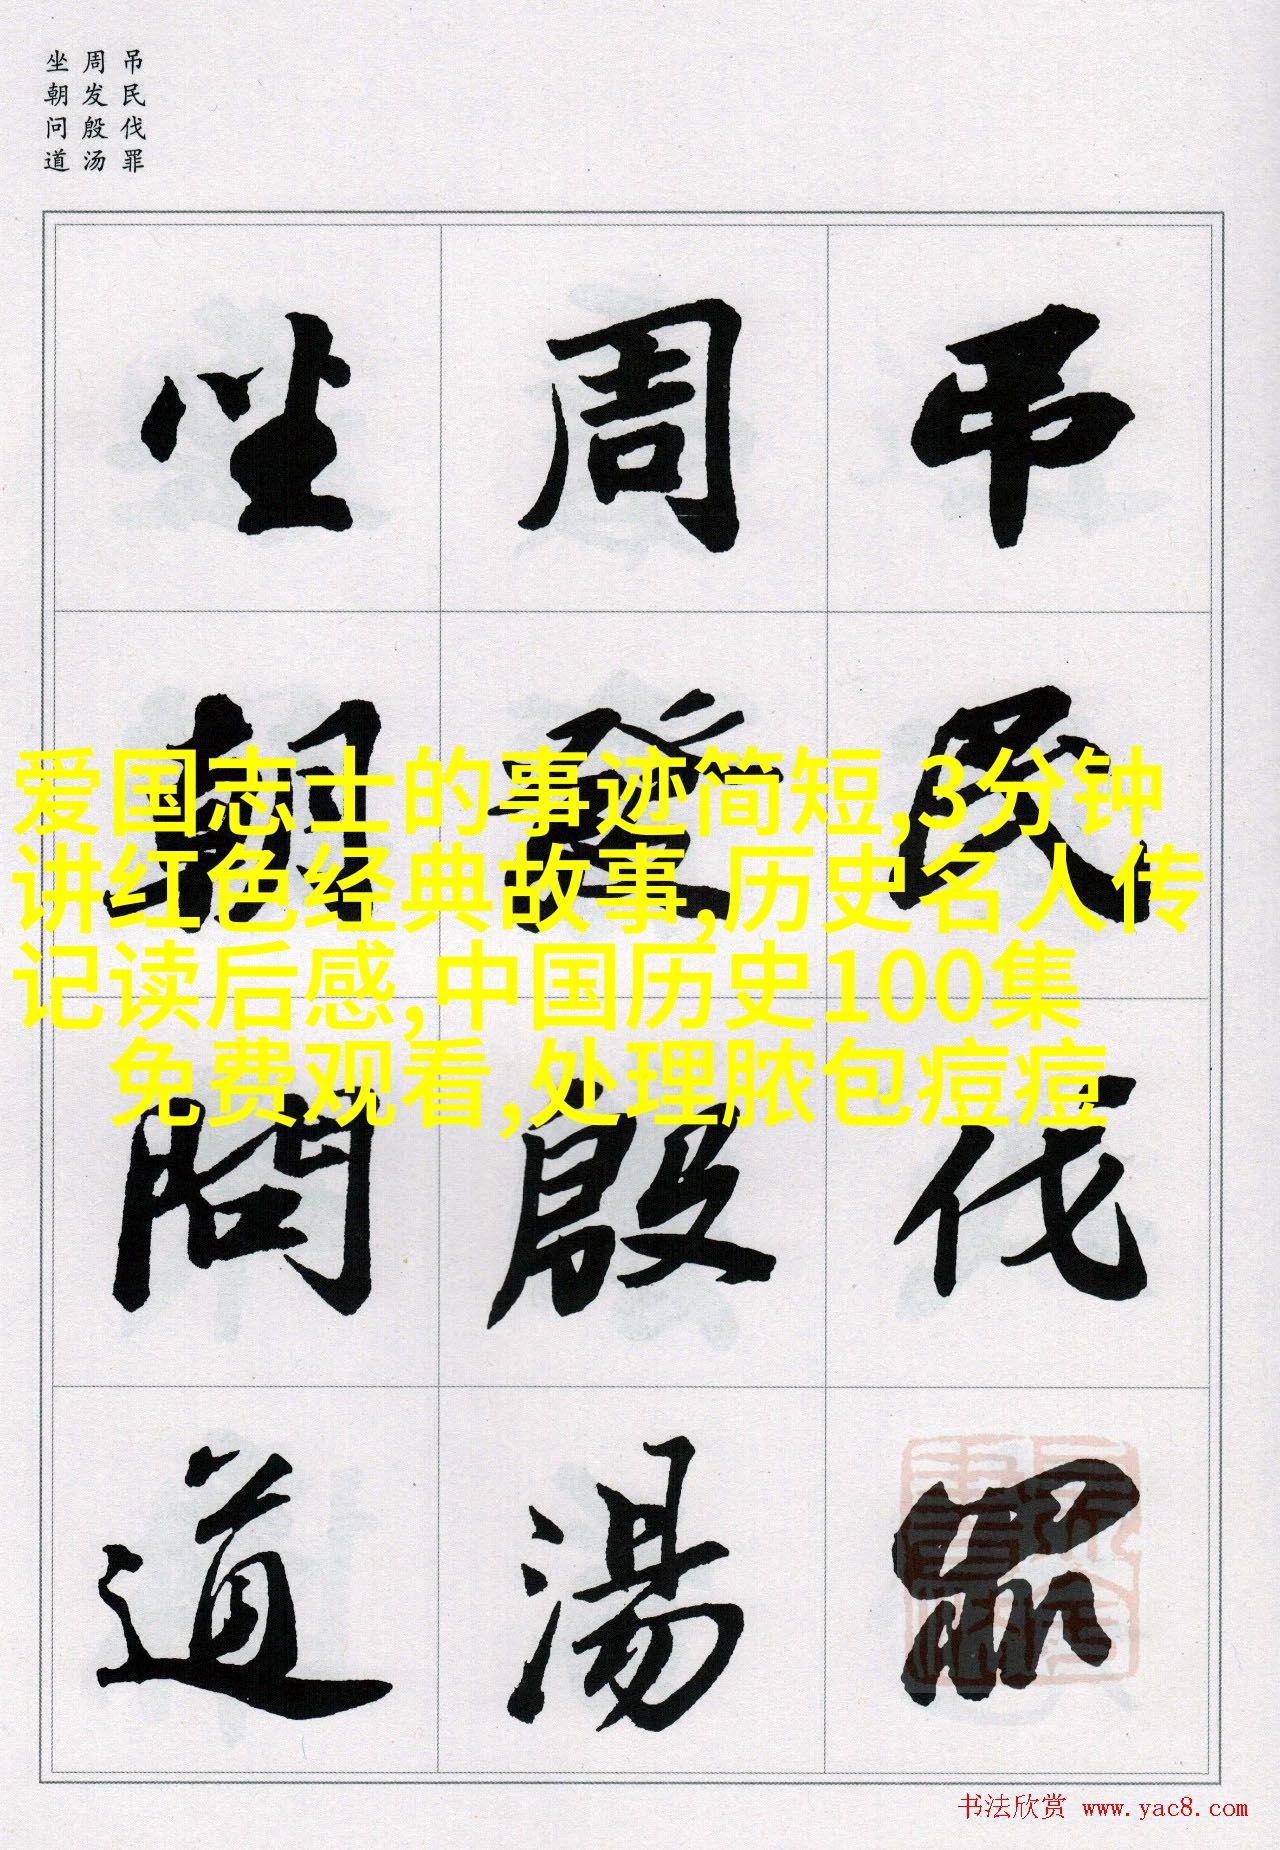 吊民伐罪
周发殷汤
坐朝问道
吊民伐罪
周發殷湯
坐朝問道
爱国志士的事迹简短,3分钟
讲红色经典故事,历史名人传
记读后感,中国历史100集
免费观看,处理脓包痘痘
书法欣赏 www.yac8.com